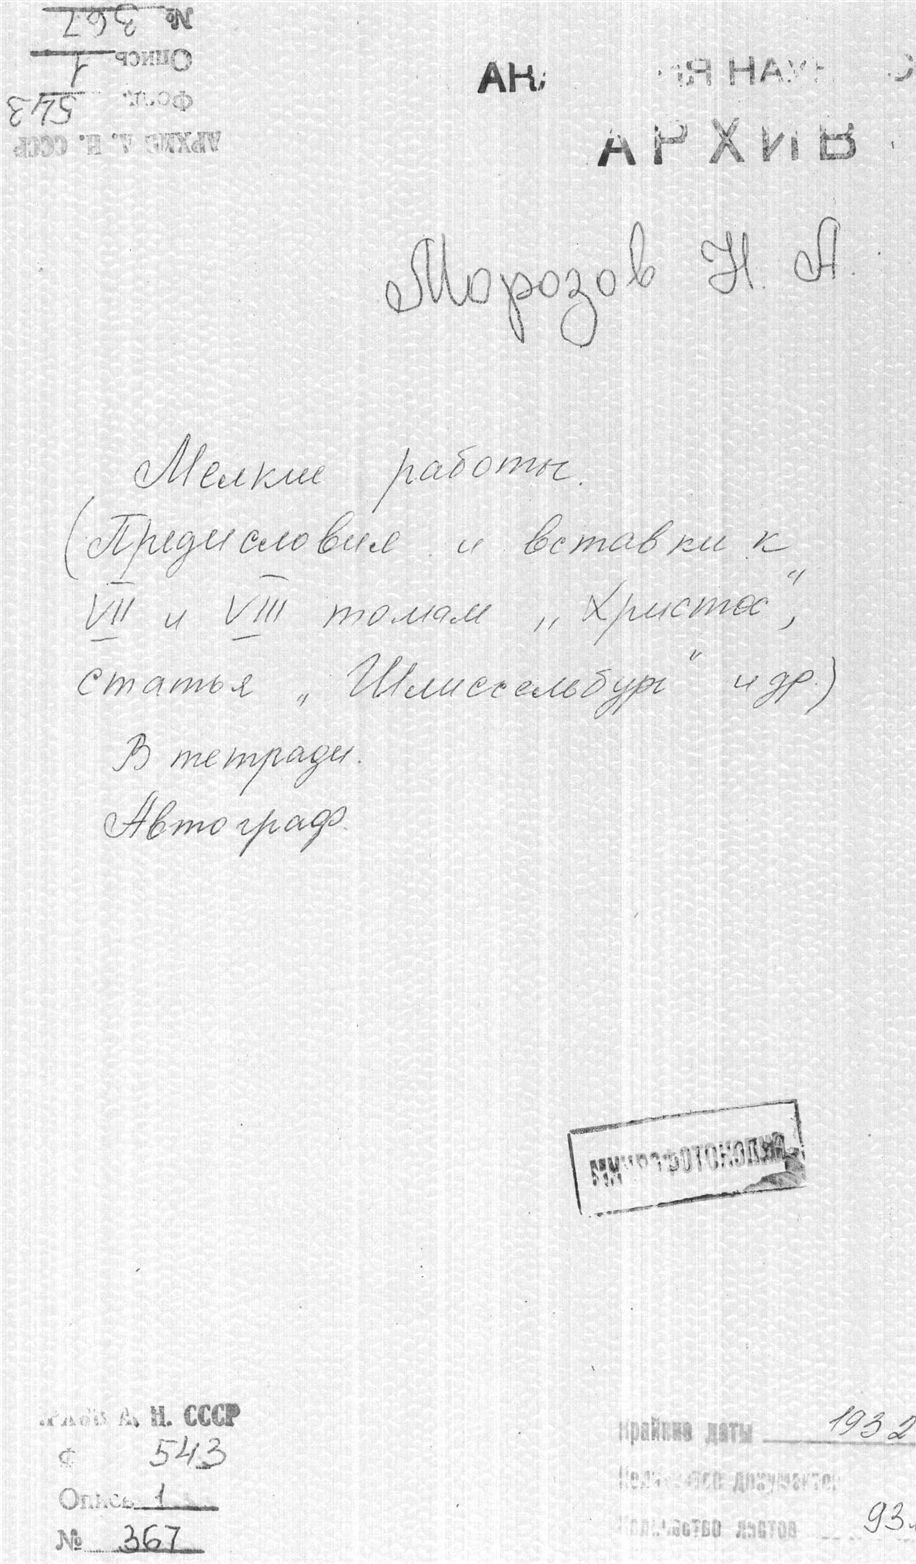 № 367
Опись 1
Фонд 543
АРХИВ А. Н. СССР
НАУК
АРХИВ
Морозов Н. А.
Мелкие работы.
(Предисловия и вставки к
VII и VIII томам „Христос",
статья „Шлиссельбург" и др.)
В тетради.
Автограф.
МИКРОФОТОКОПИЯ
АРХИВ А. Н. СССР
543
Опись 1
№ 367
Крайние даты 1932
Количество документов
Количество листов 93